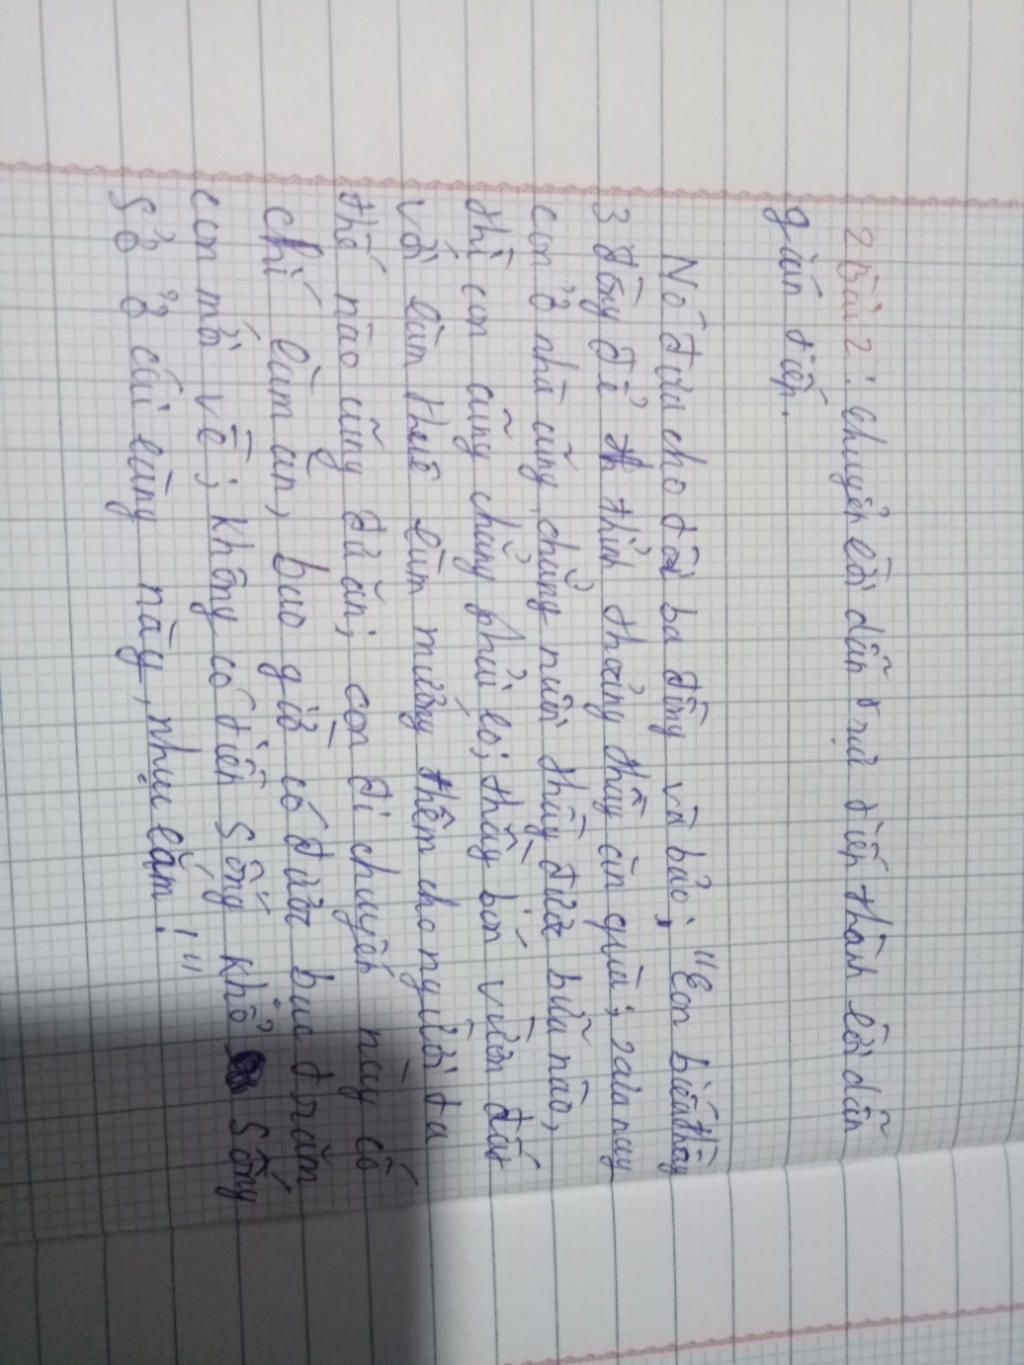 2 Bài 2: Chuyển lời dẫn trực tiếp thành lời dẫn
gián tiếp.
Nó đưa cho tôi ba đồng và bảo: "Con biếu thầy
3 đồng để thỉnh thoảng thầy ăn quà; xưa nay
con ở nhà cũng chẳng nuôi thầy được bữa nào,
thì con cũng chẳng phải lo; thầy bòn vườn đất
với làm thuê làm mướng thêm cho người ta
thế nào cũng đủ ăn; con đi chuyến này cố
chí làm ăn, bao giờ có được bac trăm
con mới về; không có tiền sống khổ sống
sở ở cái làng này, nhục lắm!"